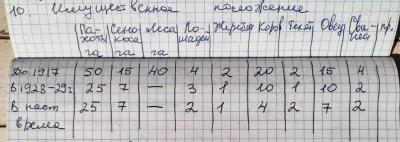 10. Имущественное положение
Па- Сено- Леса Ло- Жеребя Коров Телят Овец Сви- пр.
хоты коса шадей ней
га га га
До 1917 50 15 40 4 2 20 2 15 4
в 1928-29г. 25 7 — 3 1 10 1 10 2
В наст 25 7 — 2 1 4 2 7 2
время